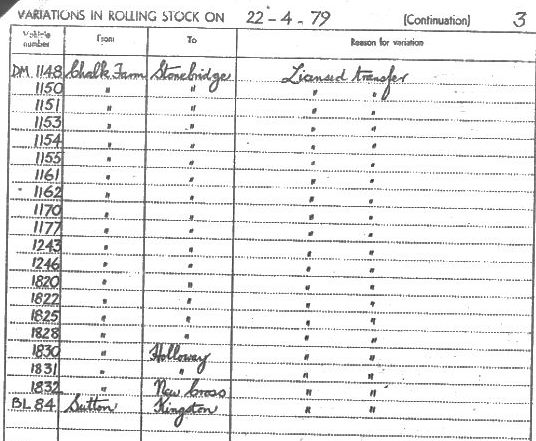 VARIATIONS IN ROLLING STOCK ON 22-4-79 (Continuation) 3
Vehicle number From To Reason for variation
DM. 1148 Chalk Farm Stonebridge Licensed transfer
1150 " " " "
1151 " " " "
1153 " " " "
1154 " " " "
1155 " " " "
1161 " " " "
1162 " " " "
1170 " " " "
1177 " " " "
1243 " " " "
1246 " " " "
1820 " " " "
1822 " " " "
1825 " " " "
1828 " " " "
1830 " Holloway " "
1831 " " " "
1832 " New Cross " "
BL 84 Sutton Kingston " "